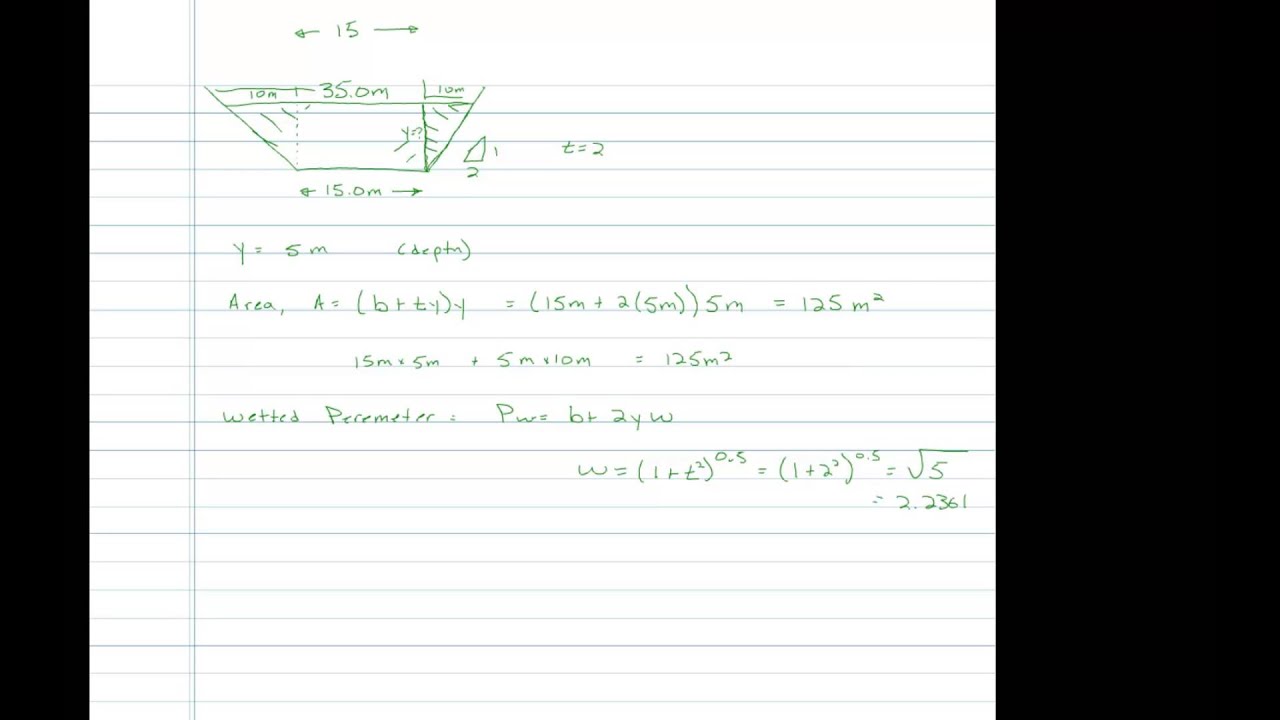 ← 15 →
10m 35.0m 10m
y=?
1
2
t=2
← 15.0m →
y = 5m (depth)
Area, A = (b+ty)y = (15m + 2(5m))5m = 125 m²
15m × 5m + 5m × 10m = 125m²
Wetted Peremeter = Pw = b+ 2yw
w = (1+t²)^0.5 = (1+2²)^0.5 = √5
= 2.2361